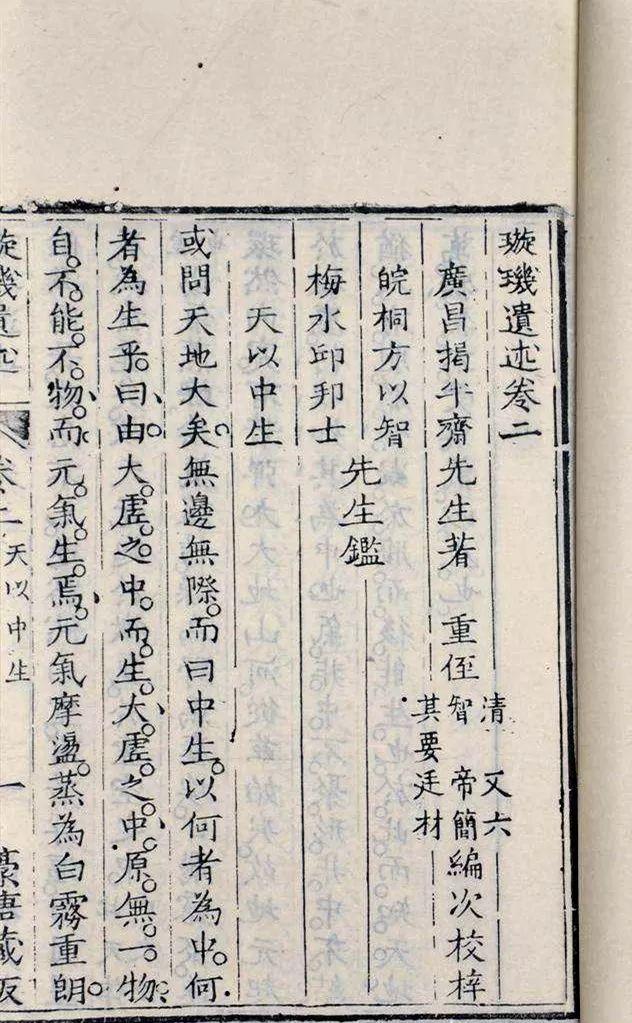 璇璣遺述卷二
廣昌揭半齋先生著 重侄
清 又六
智 帝簡
其要廷材
編次校梓
皖桐方以智
梅水邱邦士
先生鑑
天以中生
或問天地大矣無邊無際而曰中生以何者為中何
者為生乎曰由大虛之中而生大虛之中原無一物
自不能不物而元氣生焉元氣摩盪蒸為白霧重朗
璇璣遺述
卷二 天以中生 一